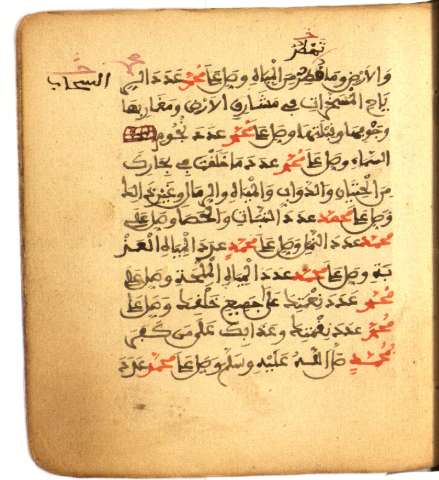 تمطر
السحاب
والارض وما تقطر من المياه وصل على محمد عدد الر
ياح المسخرات في مشارق الارض ومغاربها
وجوفها وقبلتها وصل على محمد عدد نجوم
السماء وصل على محمد عدد ما خلقت في بحارك
من الحيتان والدواب والمياه والرمال وغير ذلك
وصل على محمد عدد النبات والحصا وصل على
محمد عدد النمل وصل على محمد عدد المياه العذ
بة وصل على محمد عدد المياه الملحة وصل على
محمد عدد نعمتك على جميع خلقك وصل على
محمد عدد نقمتك وعذابك على من كفر
بمحمد صلى الله عليه وسلم وصل على محمد عدد